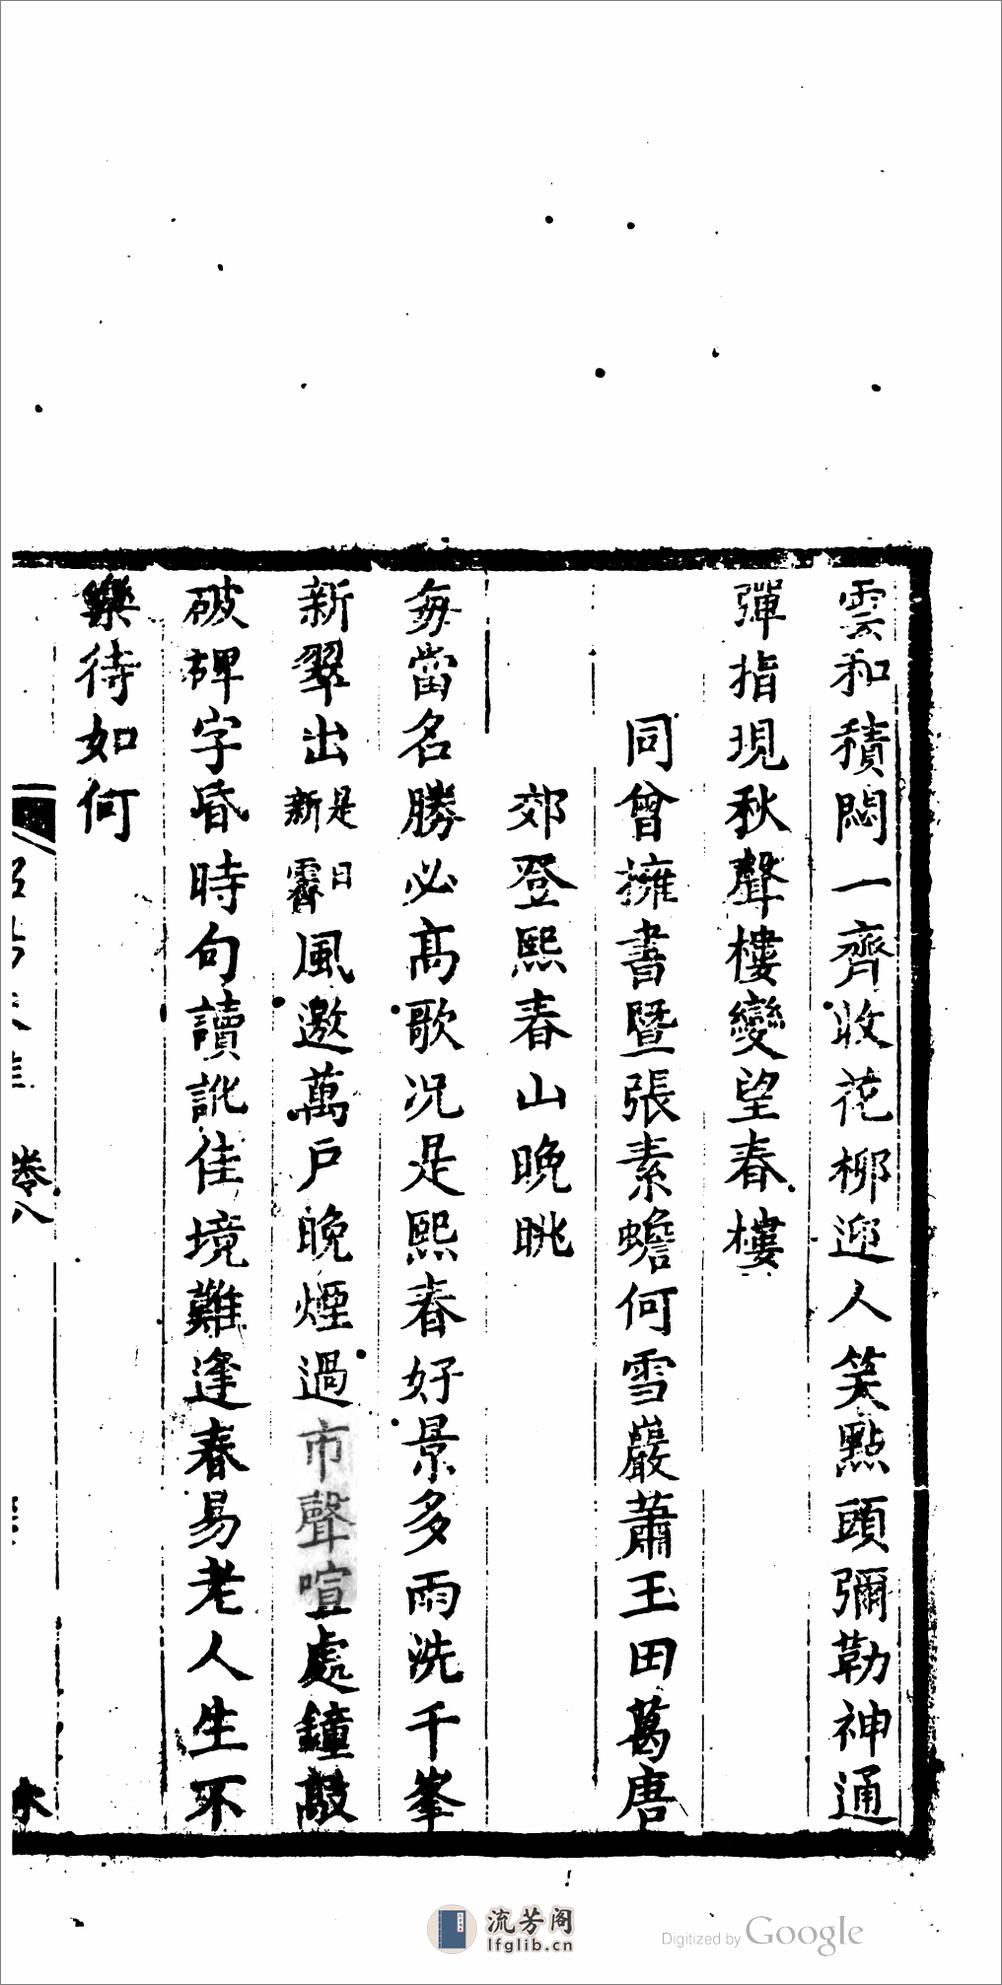 雲和積悶一齊收花柳迎人笑點頭彌勒神通
彈指現秋聲樓變望春樓
同曾擁書暨張素蟾何雪巖蕭玉田葛唐
郊登熙春山晚眺
每當名勝必高歌况是熙春好景多雨洗千峯
新翠出是日新霽風邀萬戶晚煙過市聲喧處鐘敲
破碑字昏時句讀訛佳境難逢春易老人生不
樂待如何
卷八
流芳阁
lfglib.cn
Digitized by Google